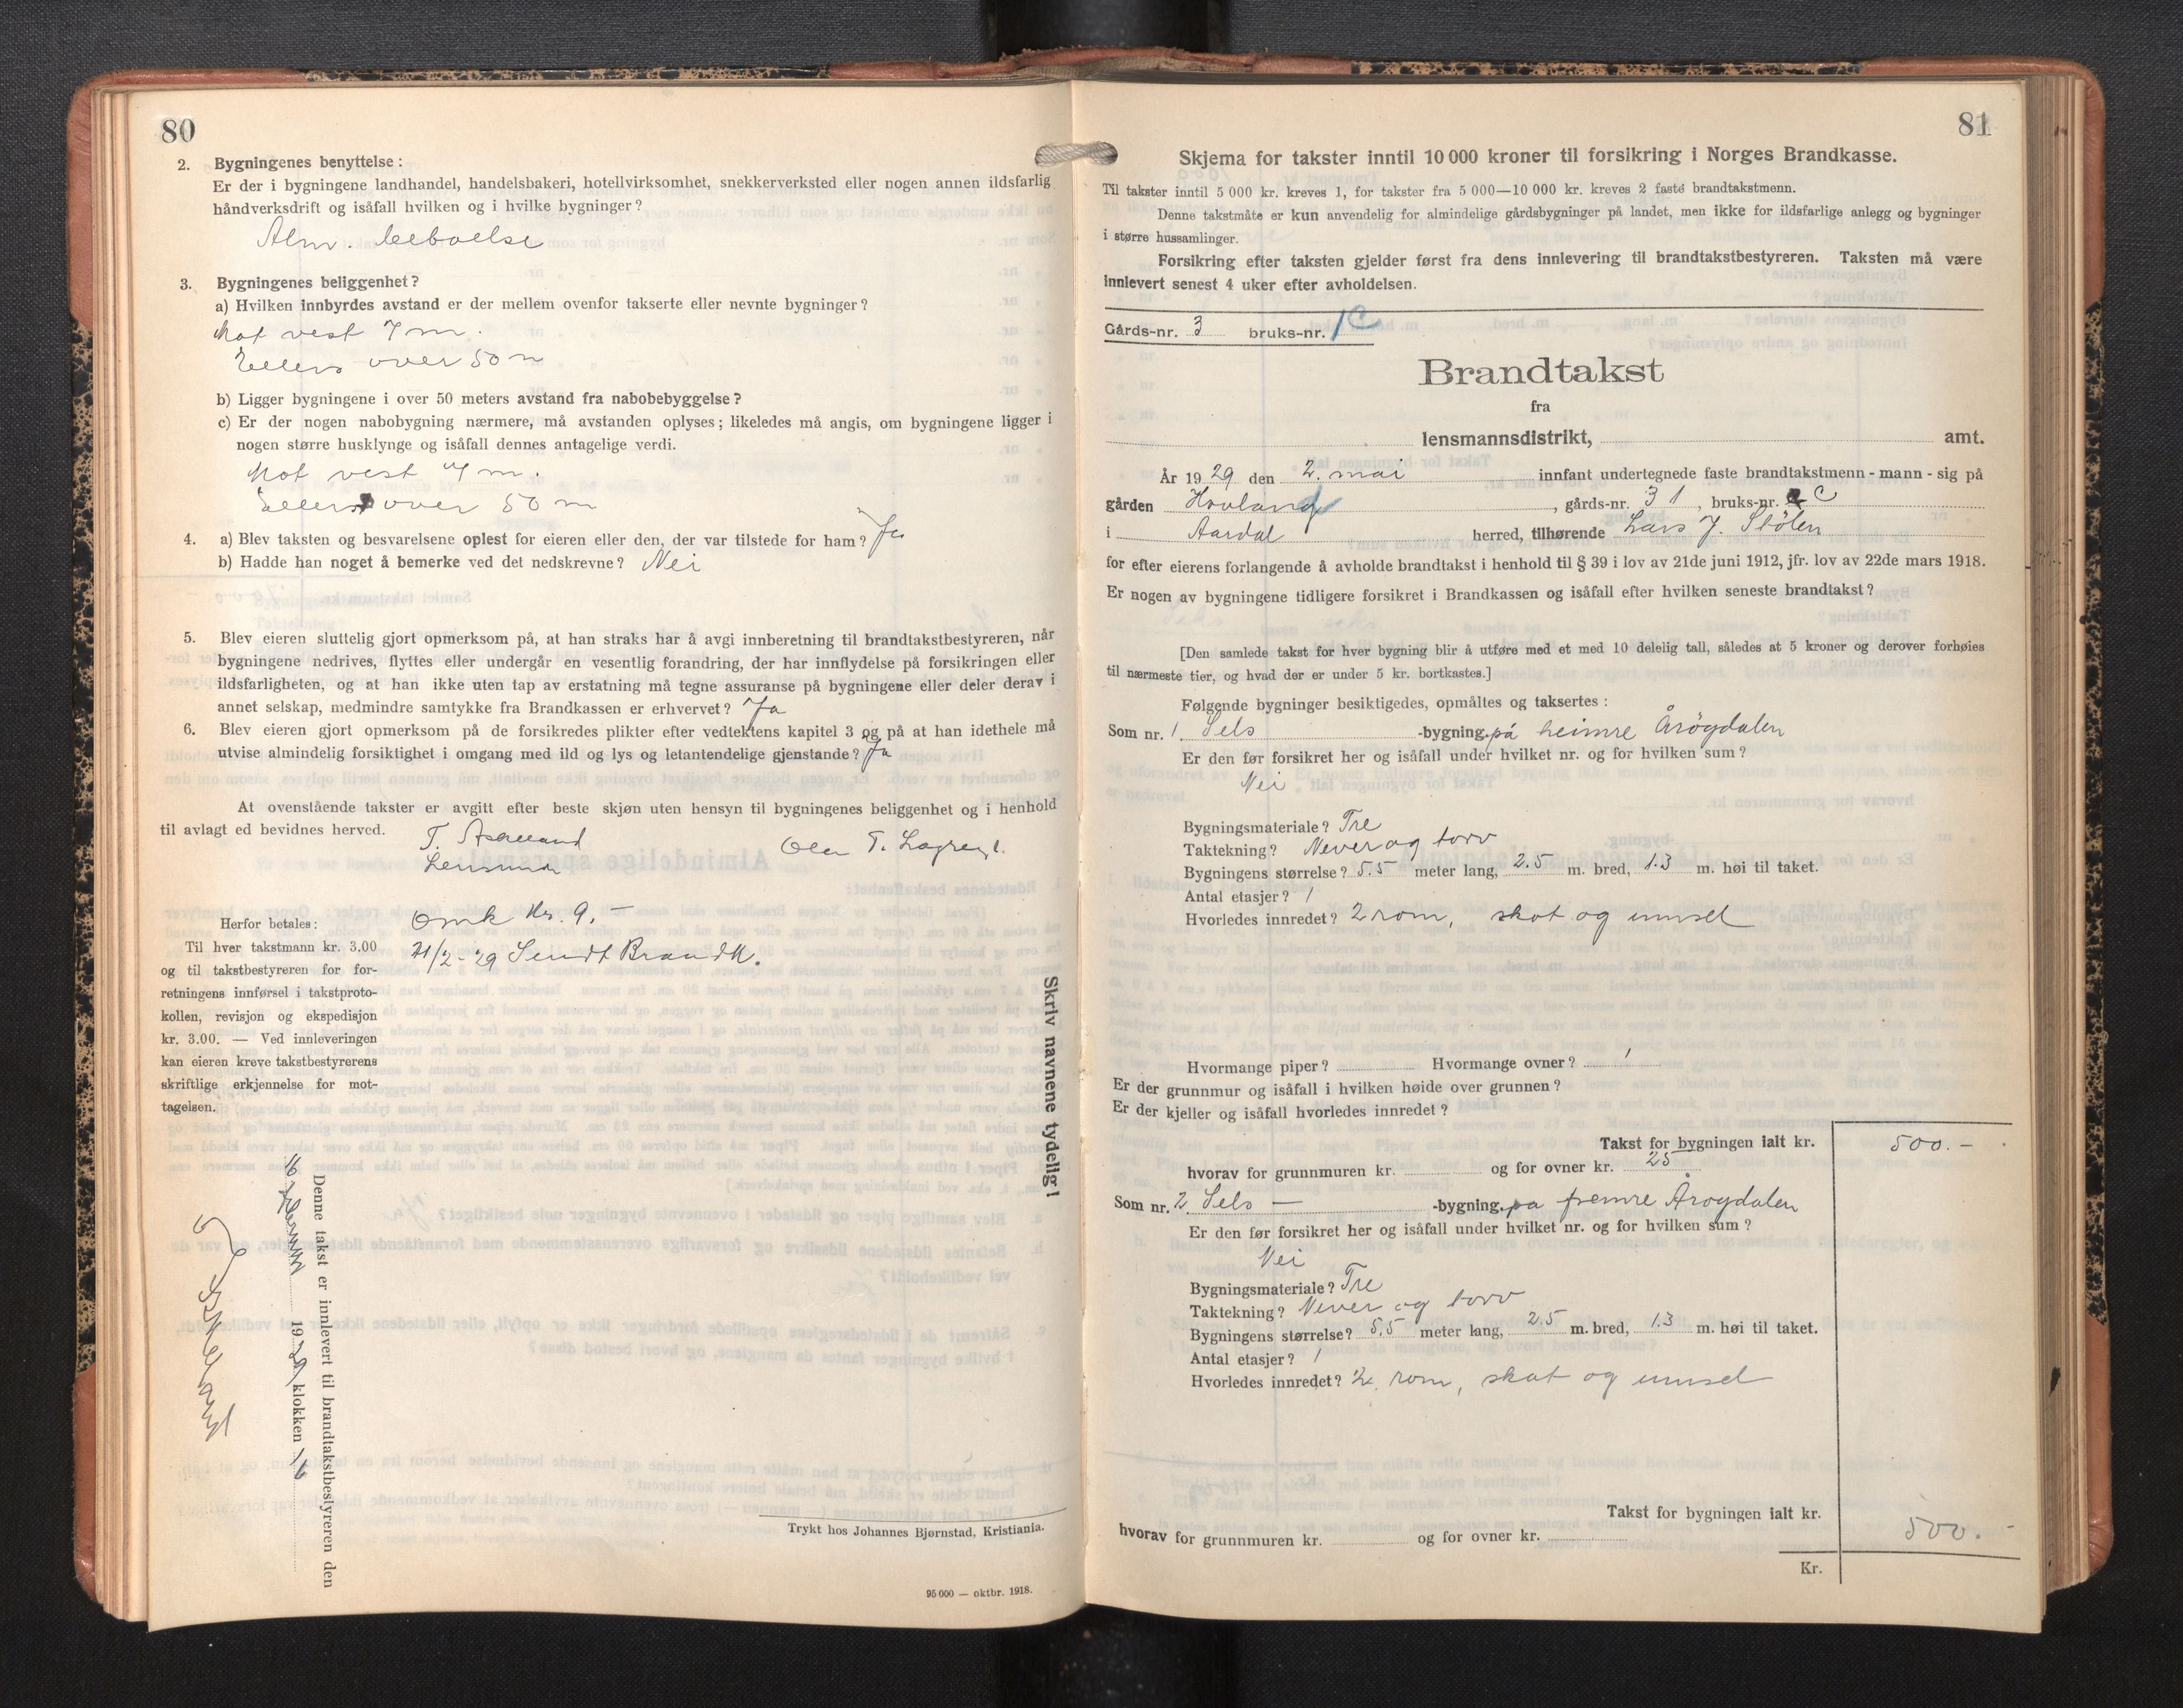 80
2. Bygningenes benyttelse:
Er der i bygningene landhandel, handelsbakeri, hotellvirksomhet, snekkerverksted eller nogen annen ildsfarlig
håndverksdrift og isåfall hvilken og i hvilke bygninger?
Alm. beboelse
3. Bygningenes beliggenhet?
a) Hvilken innbyrdes avstand er der mellem ovenfor takserte eller nevnte bygninger?
Mot vest 7 m.
Ellers over 50 m
b) Ligger bygningene i over 50 meters avstand fra nabobebyggelse?
c) Er der nogen nabobygning nærmere, må avstanden oplyses; likeledes må angis, om bygningene ligger i
nogen større husklynge og isåfall dennes antagelige verdi.
Mot vest 7 m.
Ellers over 50 m
4. a) Blev taksten og besvarelsene oplest for eieren eller den, der var tilstede for ham? Ja
b) Hadde han noget å bemerke ved det nedskrevne? Nei
5. Blev eieren sluttelig gjort opmerksom på, at han straks har å avgi innberetning til brandtakstbestyreren, når
bygningene nedrives, flyttes eller undergår en vesentlig forandring, der har innflydelse på forsikringen eller
ildsfarligheten, og at han ikke uten tap av erstatning må tegne assuranse på bygningene eller deler derav i
annet selskap, medmindre samtykke fra Brandkassen er erhvervet? Ja
6. Blev eieren gjort opmerksom på de forsikredes plikter efter vedtektens kapitel 3 og på at han idethele må
utvise almindelig forsiktighet i omgang med ild og lys og letantendelige gjenstande? Ja
At ovenstående takster er avgitt efter beste skjøn uten hensyn til bygningenes beliggenhet og i henhold
til avlagt ed bevidnes herved.
T. Askeland
Ola T.
Lensmann
Herfor betales:
Til hver takstmann kr. 3.00
og til takstbestyreren for for-
retningens innførsel i takstproto-
kollen, revisjon og ekspedisjon
kr. 3.00. — Ved innleveringen
kan eieren kreve takstbestyrerens
skriftlige erkjennelse for mot-
tagelsen.
Omk Kr. 9.–
21/2-29 Sendt Brandk.
Skriv navnene tydelig!
Denne takst er innlevert til brandtakstbestyreren den
1929 klokken
Askeland
Trykt hos Johannes Bjørnstad, Kristiania.
95 000 — oktbr. 1918.
81
Skjema for takster inntil 10 000 kroner til forsikring i Norges Brandkasse.
Til takster inntil 5 000 kr. kreves 1, for takster fra 5 000—10 000 kr. kreves 2 faste brandtakstmenn.
Denne takstmåte er kun anvendelig for almindelige gårdsbygninger på landet, men ikke for ildsfarlige anlegg og bygninger
i større hussamlinger.
Forsikring efter taksten gjelder først fra dens innlevering til brandtakstbestyreren. Taksten må være
innlevert senest 4 uker efter avholdelsen.
Gårds-nr. 3 bruks-nr. 1C
Brandtakst
fra
lensmannsdistrikt, amt.
År 1929 den 2. mai innfant undertegnede faste brandtakstmenn - mann - sig på
gården Hovland, gårds-nr. 3 1, bruks-nr. C
i Aardal herred, tilhørende Lars J. Stølen
for efter eierens forlangende å avholde brandtakst i henhold til § 39 i lov av 21de juni 1912, jfr. lov av 22de mars 1918.
Er nogen av bygningene tidligere forsikret i Brandkassen og isåfall efter hvilken seneste brandtakst?
[Den samlede takst for hver bygning blir å utføre med et med 10 delelig tall, således at 5 kroner og derover forhøies
til nærmeste tier, og hvad der er under 5 kr. bortkastes.]
Følgende bygninger besiktigedes, opmåltes og taksertes:
Som nr. 1 Sels -bygning på heimre Årøgdalen
Er den før forsikret her og isåfall under hvilket nr. og for hvilken sum?
Nei
Bygningsmateriale? Tre
Taktekning? Never og torv
Bygningens størrelse? 5.5 meter lang, 2.5 m. bred, 1.3 m. høi til taket.
Antal etasjer? 1
Hvorledes innredet? 2 rom, skot og unnsel
Hvormange piper? Hvormange ovner? 1
Er der grunnmur og isåfall i hvilken høide over grunnen?
Er der kjeller og isåfall hvorledes innredet?
Takst for bygningen ialt kr. 500.–
hvorav for grunnmuren kr. og for ovner kr. 25
Som nr. 2 Sels — -bygning på fremre Årøgdalen
Er den før forsikret her og isåfall under hvilket nr. og for hvilken sum?
Nei
Bygningsmateriale? Tre
Taktekning? Never og torv
Bygningens størrelse? 5.5 meter lang, 2.5 m. bred, 1.3 m. høi til taket.
Antal etasjer? 1
Hvorledes innredet? 2 rom, skot og unnsel
Takst for bygningen ialt kr. 500.–
hvorav for grunnmuren kr. og for ovner kr.
Kr.